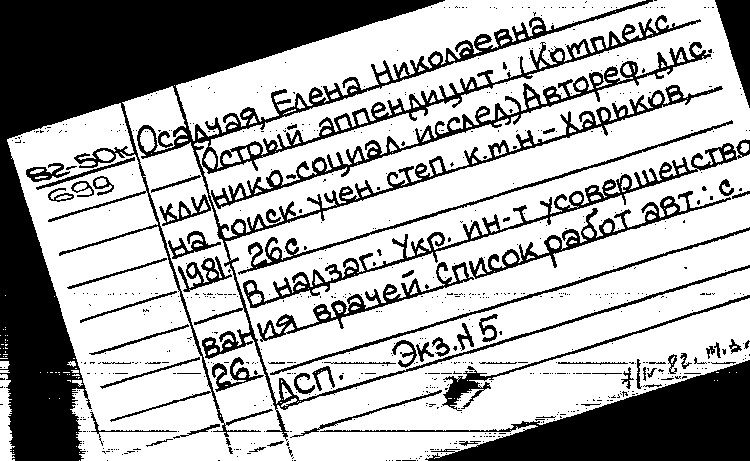 82-50к
699
Осадчая, Елена Николаевна.
Острый аппендицит: (Комплекс.
клинико-социал. исслед.) Автореф. дис.
на соиск. учен. степ. к.м.н.- Харьков,
1981.- 26с.
В надзаг.: Укр. ин-т усовершенство
вания врачей. Список работ авт.: с.
26.
ДСП. Экз.N 5.